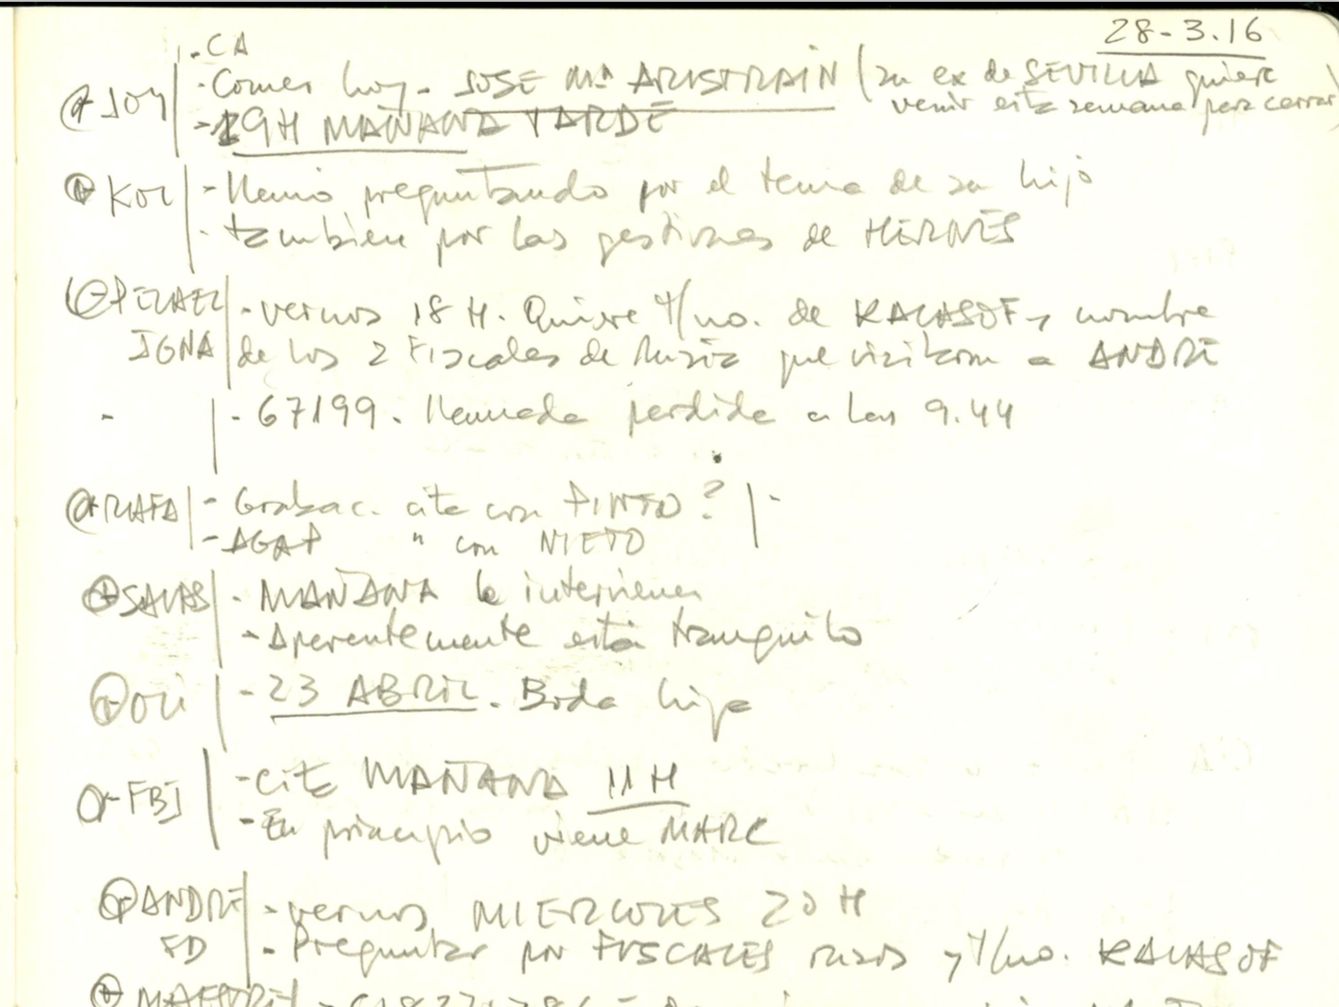 28-3.16
- CA
JOY - Comer hoy - JOSE Mª ARISTRAIN (su ex de SEVILLA quiere
venir esta semana para cerrar)
- 19H MAÑANA TARDE
KOL - Llamó preguntando por el tema de su hijo
- también por las gestiones de HERMES
PELAEZ - vernos 18 H. Quiere T/no. de KALASOF y nombre
IGNA de los 2 Fiscales de Rusia que visitaron a ANDRE
- - 67199. llamada perdida a las 9.44
RAFA - Grabac. cita con PINTO?
- AGAP " con NIETO
SALAS - MAÑANA le intervienen
- Aparentemente está tranquilo
OLI - 23 ABRIL. Boda hija
FBI - Cita MAÑANA 11 H
- En principio viene MARC
ANDRE - vernos MIERCOLES 20 H
FD - Preguntar por FISCALES rusos y T/no. KALASOF